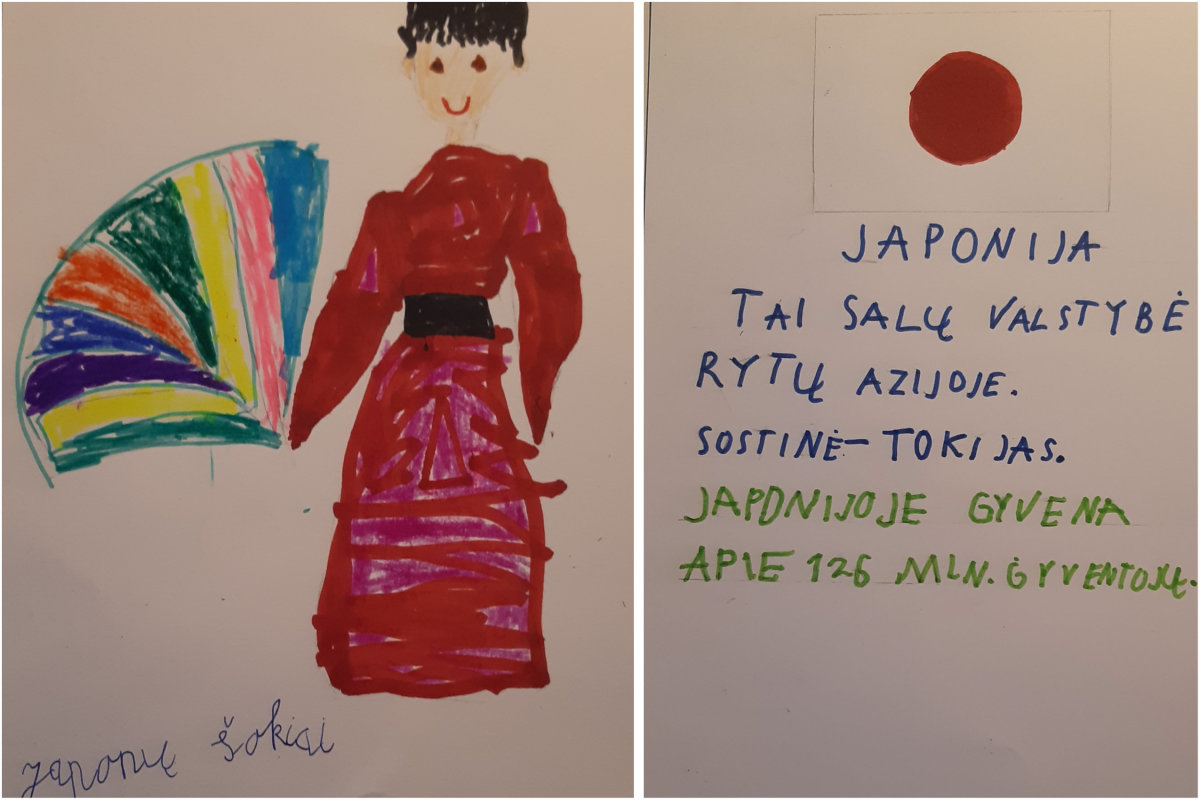 japonų šokiai
JAPONIJA
TAI SALŲ VALSTYBĖ
RYTŲ AZIJOJE.
SOSTINĖ– TOKIJAS.
JAPONIJOJE GYVENA
APIE 126 MLN. GYVENTOJŲ.